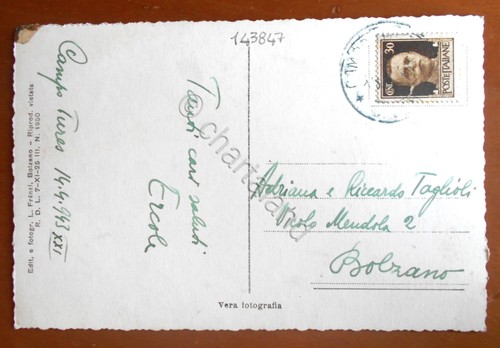 143847
Campo Tures 14.4.1943 XXI
Tanti cari saluti
Ercole
CENT 30
POSTE ITALIANE
Adriana e Riccardo Taglioli
Vicolo Mendola 2
Bolzano
Vera fotografia
Edit. e fotogr. L. Fränzl, Bolzano - Riprod. vietata
R. D. L. 7-XI-25 III. N. 1950
© chartaland